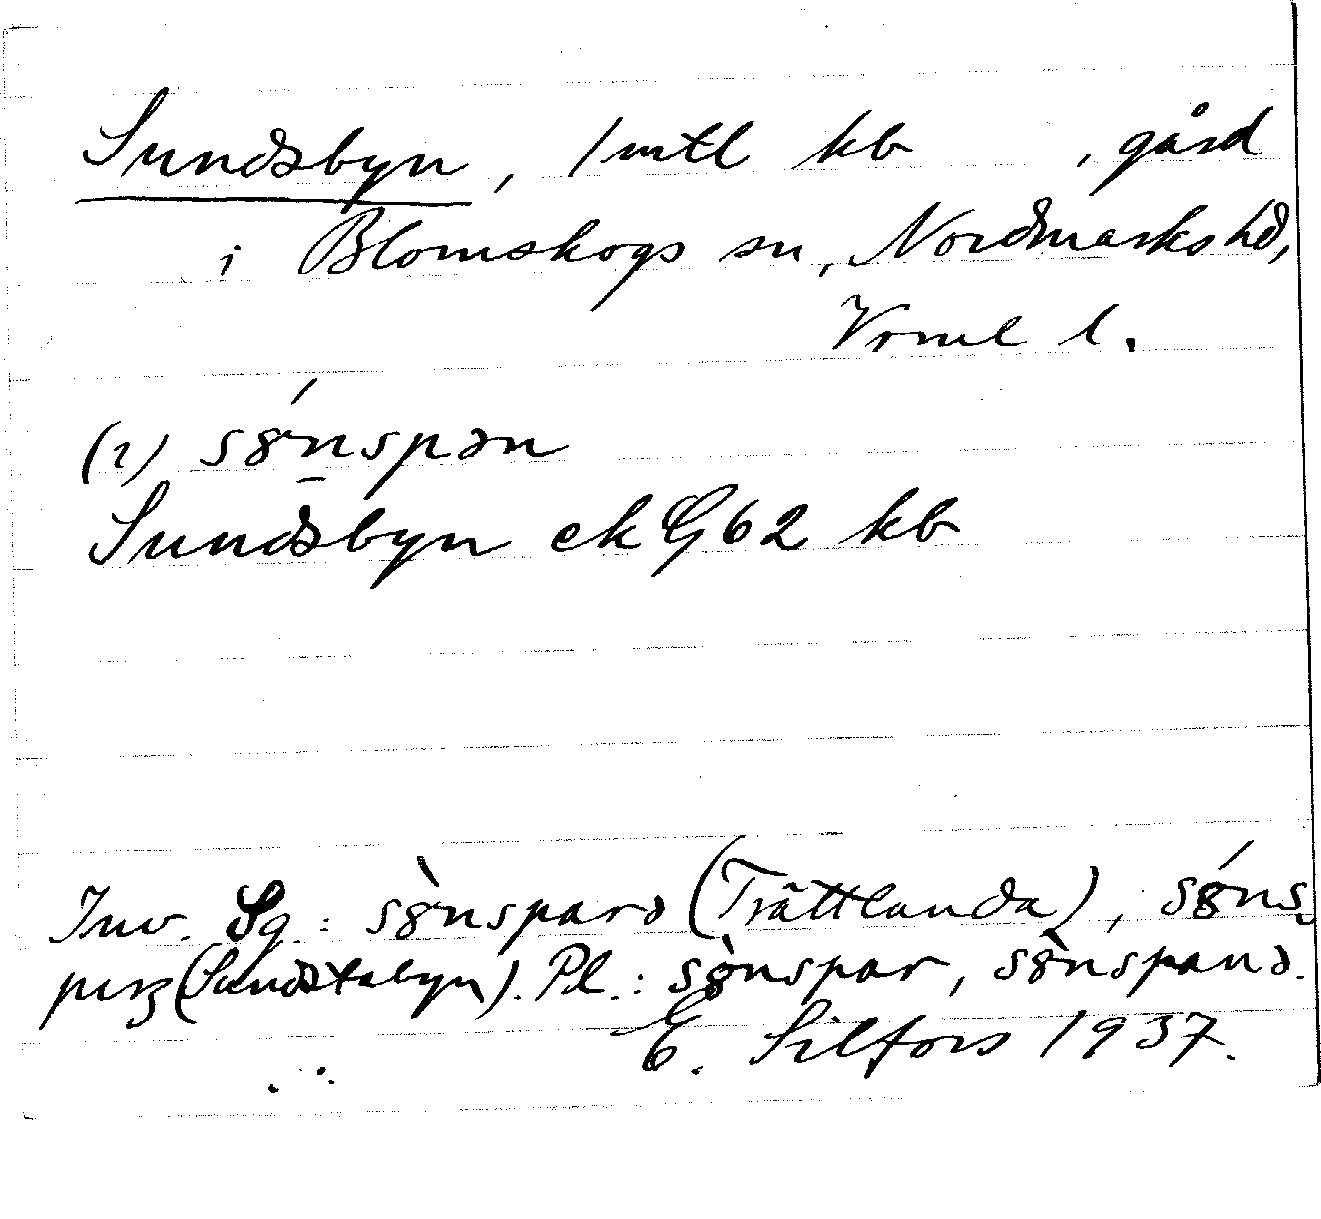 Sundsbyn, 1 mtl kb , gård
i Blomskogs sn, Nordmarks hd,
Vrml l.
(1) sǿnspən
Sundsbyn ek G62 kb
Inv. Sg.: sø̀nsparə (Trättlanda), sǿns-
(Sundstabyn). Pl.: sø̀nspar, sø̀nspanə.
E. Silfors 1937.